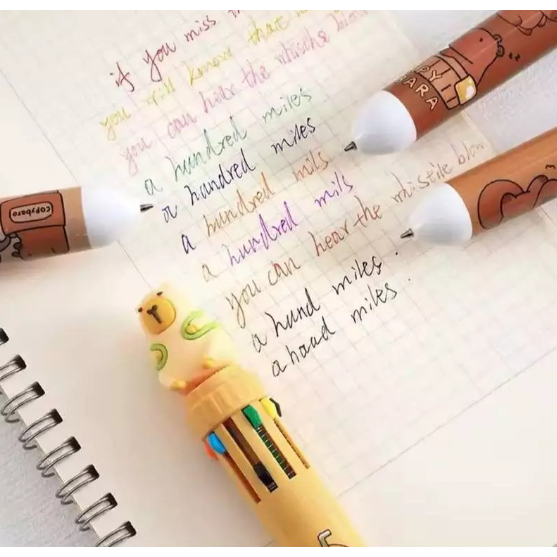 if you miss
you will know that
you can hear the whistle blow
a hundred miles
a hundred miles
a hundred mils
a hundred mils
you can hear the whistile blow
a hund miles.
a houd miles.
copybara
DY
BARA